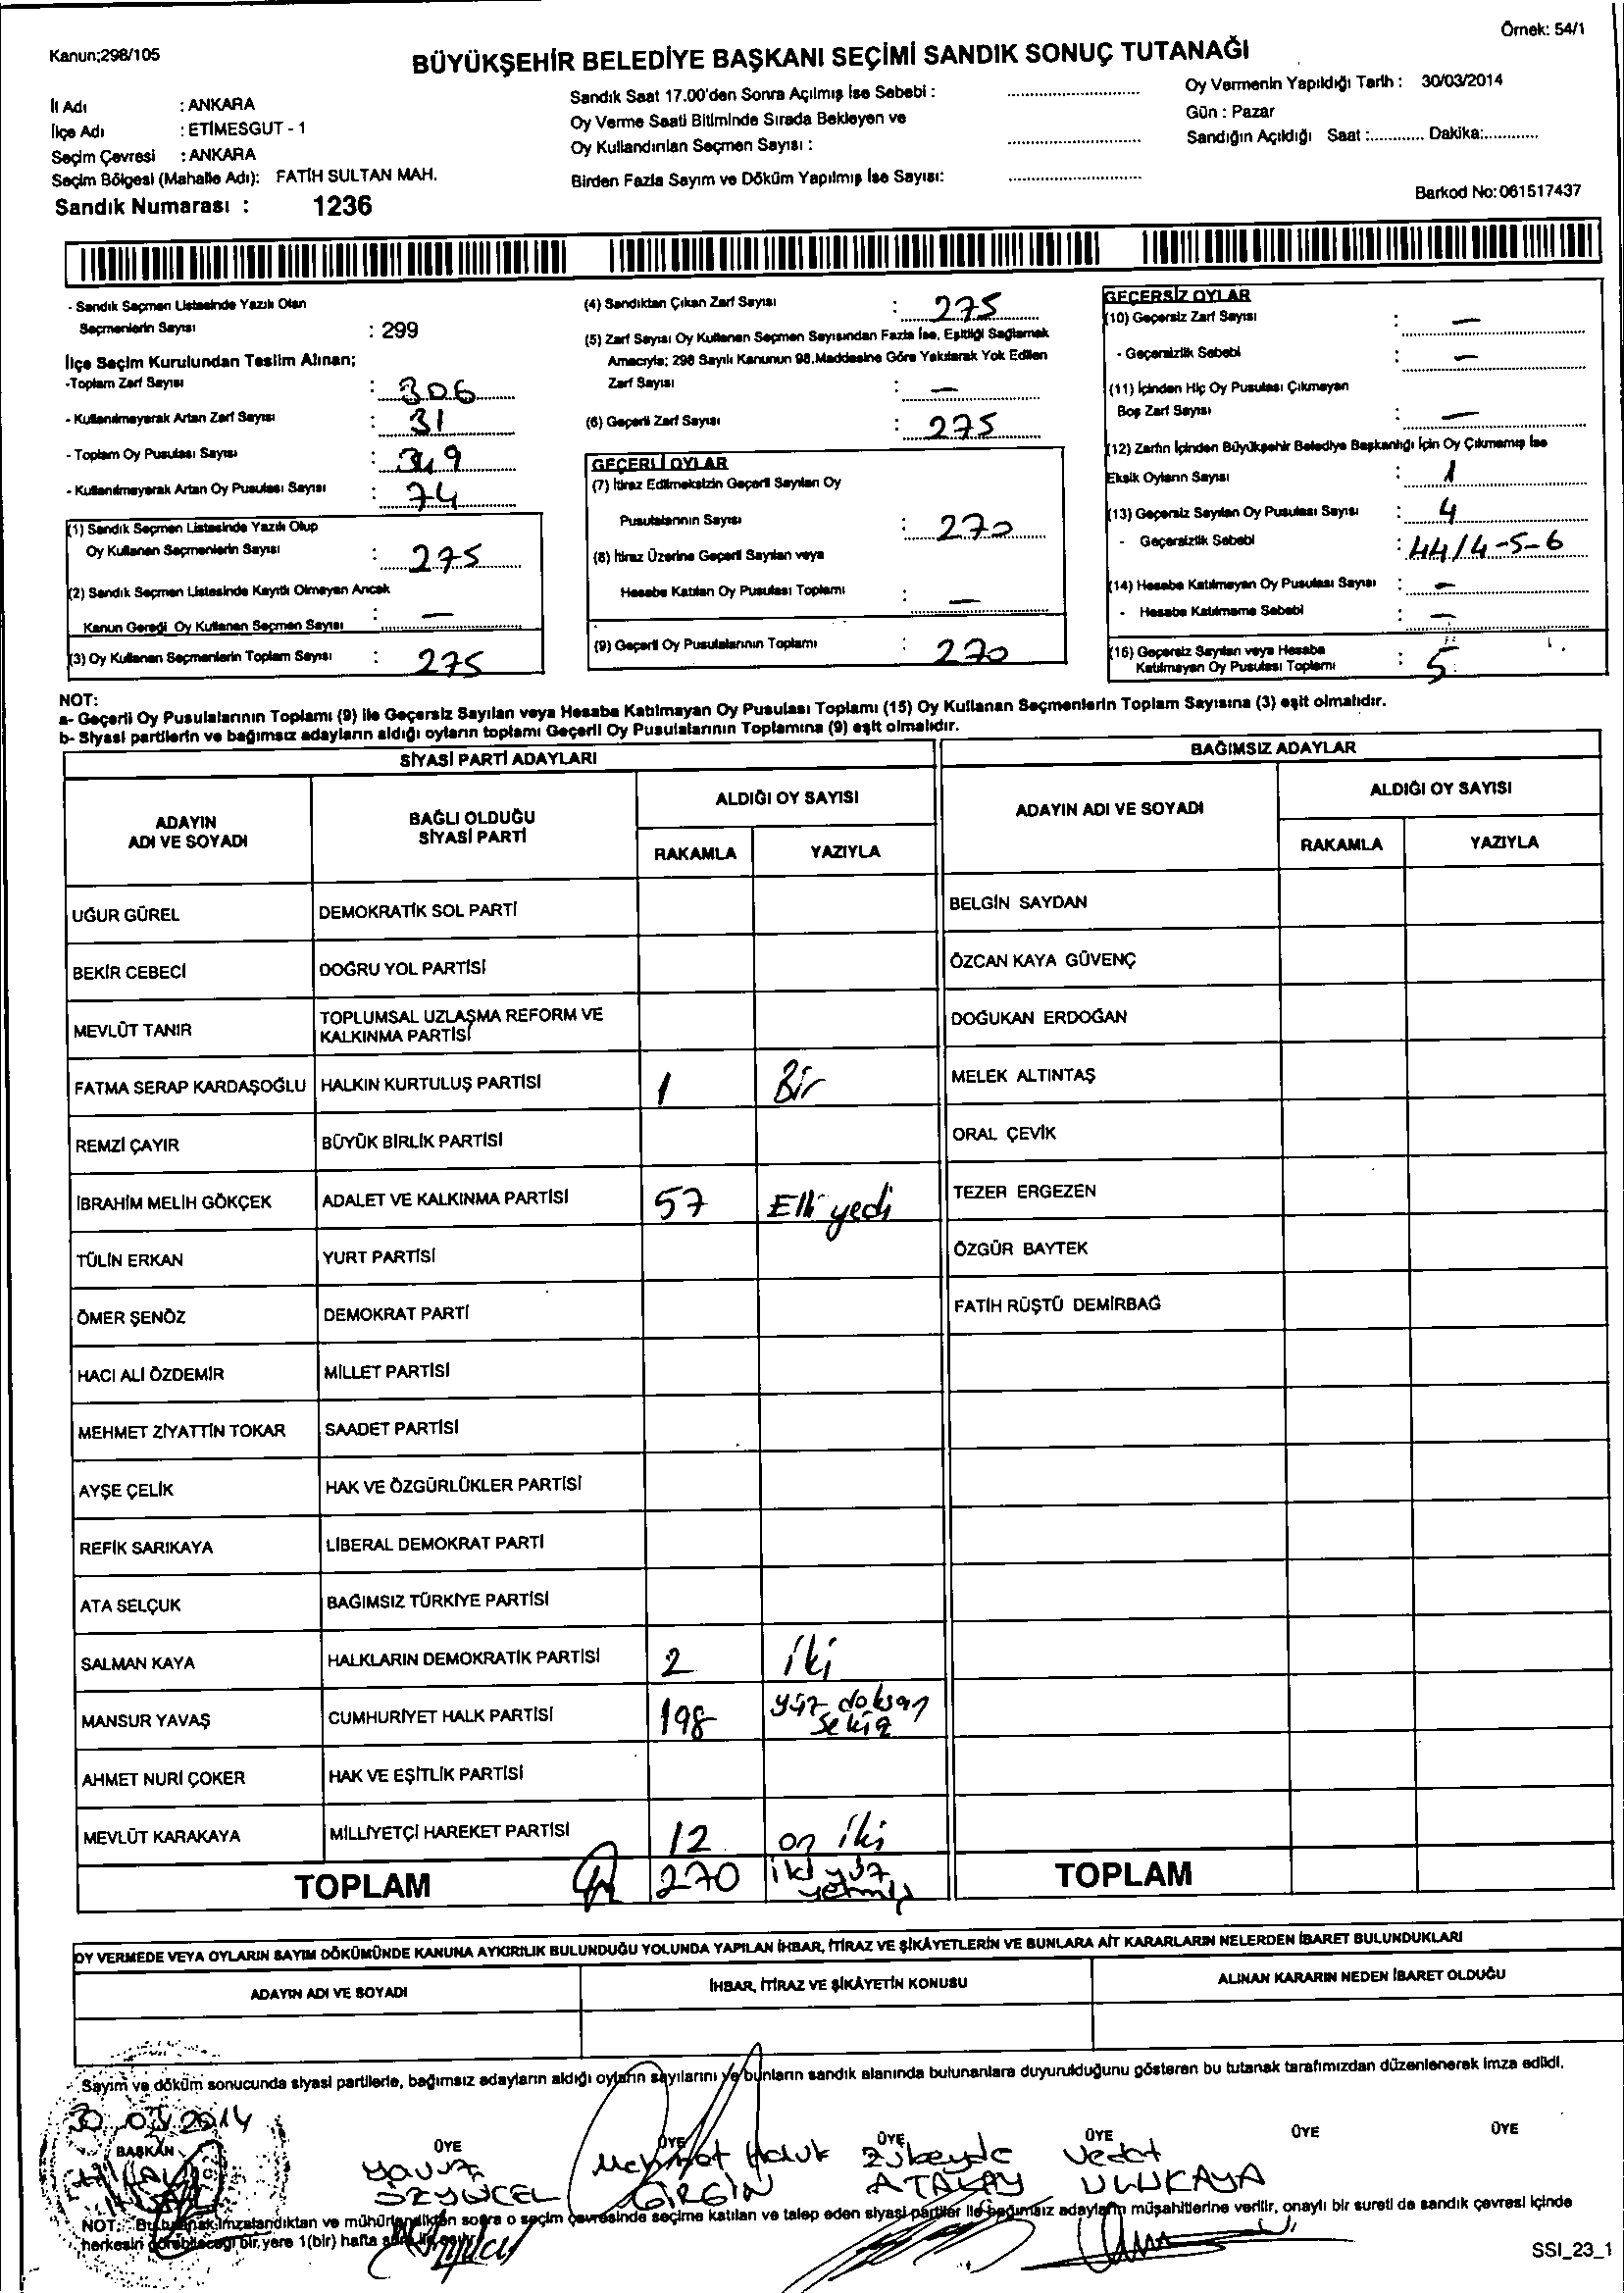 Örnek: 54/1
Kanun;298/105
BÜYÜKŞEHİR BELEDİYE BAŞKANI SEÇİMİ SANDIK SONUÇ TUTANAĞI
İl Adı : ANKARA
İlçe Adı : ETİMESGUT - 1
Seçim Çevresi : ANKARA
Seçim Bölgesi (Mahalle Adı): FATİH SULTAN MAH.
Sandık Numarası : 1236
Sandık Saat 17.00'den Sonra Açılmış İse Sebebi : ........................
Oy Verme Saati Bitiminde Sırada Bekleyen ve
Oy Kullandırılan Seçmen Sayısı : ........................
Birden Fazla Sayım ve Döküm Yapılmış İse Sayısı: ........................
Oy Vermenin Yapıldığı Tarih : 30/03/2014
Gün : Pazar
Sandığın Açıldığı Saat :............ Dakika:............
Barkod No:061517437
- Sandık Seçmen Listesinde Yazılı Olan
Seçmenlerin Sayısı : 299
İlçe Seçim Kurulundan Teslim Alınan;
-Toplam Zarf Sayısı : 306
- Kullanılmayarak Artan Zarf Sayısı : 31
- Toplam Oy Pusulası Sayısı : 349
- Kullanılmayarak Artan Oy Pusulası Sayısı : 74
(1) Sandık Seçmen Listesinde Yazılı Olup
Oy Kullanan Seçmenlerin Sayısı : 275
(2) Sandık Seçmen Listesinde Kayıtlı Olmayan Ancak
Kanun Gereği Oy Kullanan Seçmen Sayısı : —
(3) Oy Kullanan Seçmenlerin Toplam Sayısı : 275
(4) Sandıktan Çıkan Zarf Sayısı : 275
(5) Zarf Sayısı Oy Kullanan Seçmen Sayısından Fazla İse, Eşitliği Sağlamak
Amacıyla; 298 Sayılı Kanunun 98.Maddesine Göre Yakılarak Yok Edilen
Zarf Sayısı : —
(6) Geçerli Zarf Sayısı : 275
GEÇERLİ OYLAR
(7) İtiraz Edilmeksizin Geçerli Sayılan Oy
Pusulalarının Sayısı : 270
(8) İtiraz Üzerine Geçerli Sayılan veya
Hesaba Katılan Oy Pusulası Toplamı : —
(9) Geçerli Oy Pusulalarının Toplamı : 270
GEÇERSİZ OYLAR
(10) Geçersiz Zarf Sayısı : —
- Geçersizlik Sebebi : —
(11) İçinden Hiç Oy Pusulası Çıkmayan
Boş Zarf Sayısı : —
(12) Zarfın İçinden Büyükşehir Belediye Başkanlığı İçin Oy Çıkmamış İse
Eksik Oyların Sayısı : 1
(13) Geçersiz Sayılan Oy Pusulası Sayısı : 4
- Geçersizlik Sebebi : 44/4-5-6
(14) Hesaba Katılmayan Oy Pusulası Sayısı : —
- Hesaba Katılmama Sebebi : —
(15) Geçersiz Sayılan veya Hesaba
Katılmayan Oy Pusulası Toplamı : 5
NOT:
a- Geçerli Oy Pusulalarının Toplamı (9) ile Geçersiz Sayılan veya Hesaba Katılmayan Oy Pusulası Toplamı (15) Oy Kullanan Seçmenlerin Toplam Sayısına (3) eşit olmalıdır.
b- Siyasi partilerin ve bağımsız adayların aldığı oyların toplamı Geçerli Oy Pusulalarının Toplamına (9) eşit olmalıdır.
SİYASİ PARTİ ADAYLARI
BAĞIMSIZ ADAYLAR
ADAYIN
ADI VE SOYADI
BAĞLI OLDUĞU
SİYASİ PARTİ
ALDIĞI OY SAYISI
RAKAMLA YAZIYLA
ADAYIN ADI VE SOYADI
ALDIĞI OY SAYISI
RAKAMLA YAZIYLA
UĞUR GÜREL DEMOKRATİK SOL PARTİ BELGİN SAYDAN
BEKİR CEBECİ DOĞRU YOL PARTİSİ ÖZCAN KAYA GÜVENÇ
MEVLÜT TANIR TOPLUMSAL UZLAŞMA REFORM VE
KALKINMA PARTİSİ DOĞUKAN ERDOĞAN
FATMA SERAP KARDAŞOĞLU HALKIN KURTULUŞ PARTİSİ 1 Bir MELEK ALTINTAŞ
REMZİ ÇAYIR BÜYÜK BİRLİK PARTİSİ ORAL ÇEVİK
İBRAHİM MELİH GÖKÇEK ADALET VE KALKINMA PARTİSİ 57 Elli yedi TEZER ERGEZEN
TÜLİN ERKAN YURT PARTİSİ ÖZGÜR BAYTEK
ÖMER ŞENÖZ DEMOKRAT PARTİ FATİH RÜŞTÜ DEMİRBAĞ
HACI ALİ ÖZDEMİR MİLLET PARTİSİ
MEHMET ZİYATTİN TOKAR SAADET PARTİSİ
AYŞE ÇELİK HAK VE ÖZGÜRLÜKLER PARTİSİ
REFİK SARIKAYA LİBERAL DEMOKRAT PARTİ
ATA SELÇUK BAĞIMSIZ TÜRKİYE PARTİSİ
SALMAN KAYA HALKLARIN DEMOKRATİK PARTİSİ 2 iki
MANSUR YAVAŞ CUMHURİYET HALK PARTİSİ 198 yüz doksan
sekiz
AHMET NURİ ÇOKER HAK VE EŞİTLİK PARTİSİ
MEVLÜT KARAKAYA MİLLİYETÇİ HAREKET PARTİSİ 12 on iki
TOPLAM 270 iki yüz
yetmiş
TOPLAM
OY VERMEDE VEYA OYLARIN SAYIM DÖKÜMÜNDE KANUNA AYKIRILIK BULUNDUĞU YOLUNDA YAPILAN İHBAR, İTİRAZ VE ŞİKÂYETLERİN VE BUNLARA AİT KARARLARIN NELERDEN İBARET BULUNDUKLARI
ADAYIN ADI VE SOYADI İHBAR, İTİRAZ VE ŞİKÂYETİN KONUSU ALINAN KARARIN NEDEN İBARET OLDUĞU
Sayım ve döküm sonucunda siyasi partilerle, bağımsız adayların aldığı oyların sayılarını ve bunların sandık alanında bulunanlara duyurulduğunu gösteren bu tutanak tarafımızdan düzenlenerek imza edildi.
30.03.2014
BAŞKAN ÜYE ÜYE ÜYE ÜYE ÜYE ÜYE
Yavuz Mehmet Haluk Zübeyde Vedat
ÖZYÜCEL GİRGİN ATALAY ULUKAYA
NOT: Bu tutanak imzalandıktan ve mühürlendikten sonra o seçim çevresinde seçime katılan ve talep eden siyasi partiler ile bağımsız adayların müşahitlerine verilir, onaylı bir sureti de sandık çevresi içinde
herkesin görebileceği bir yere 1(bir) hafta
SSI_23_1